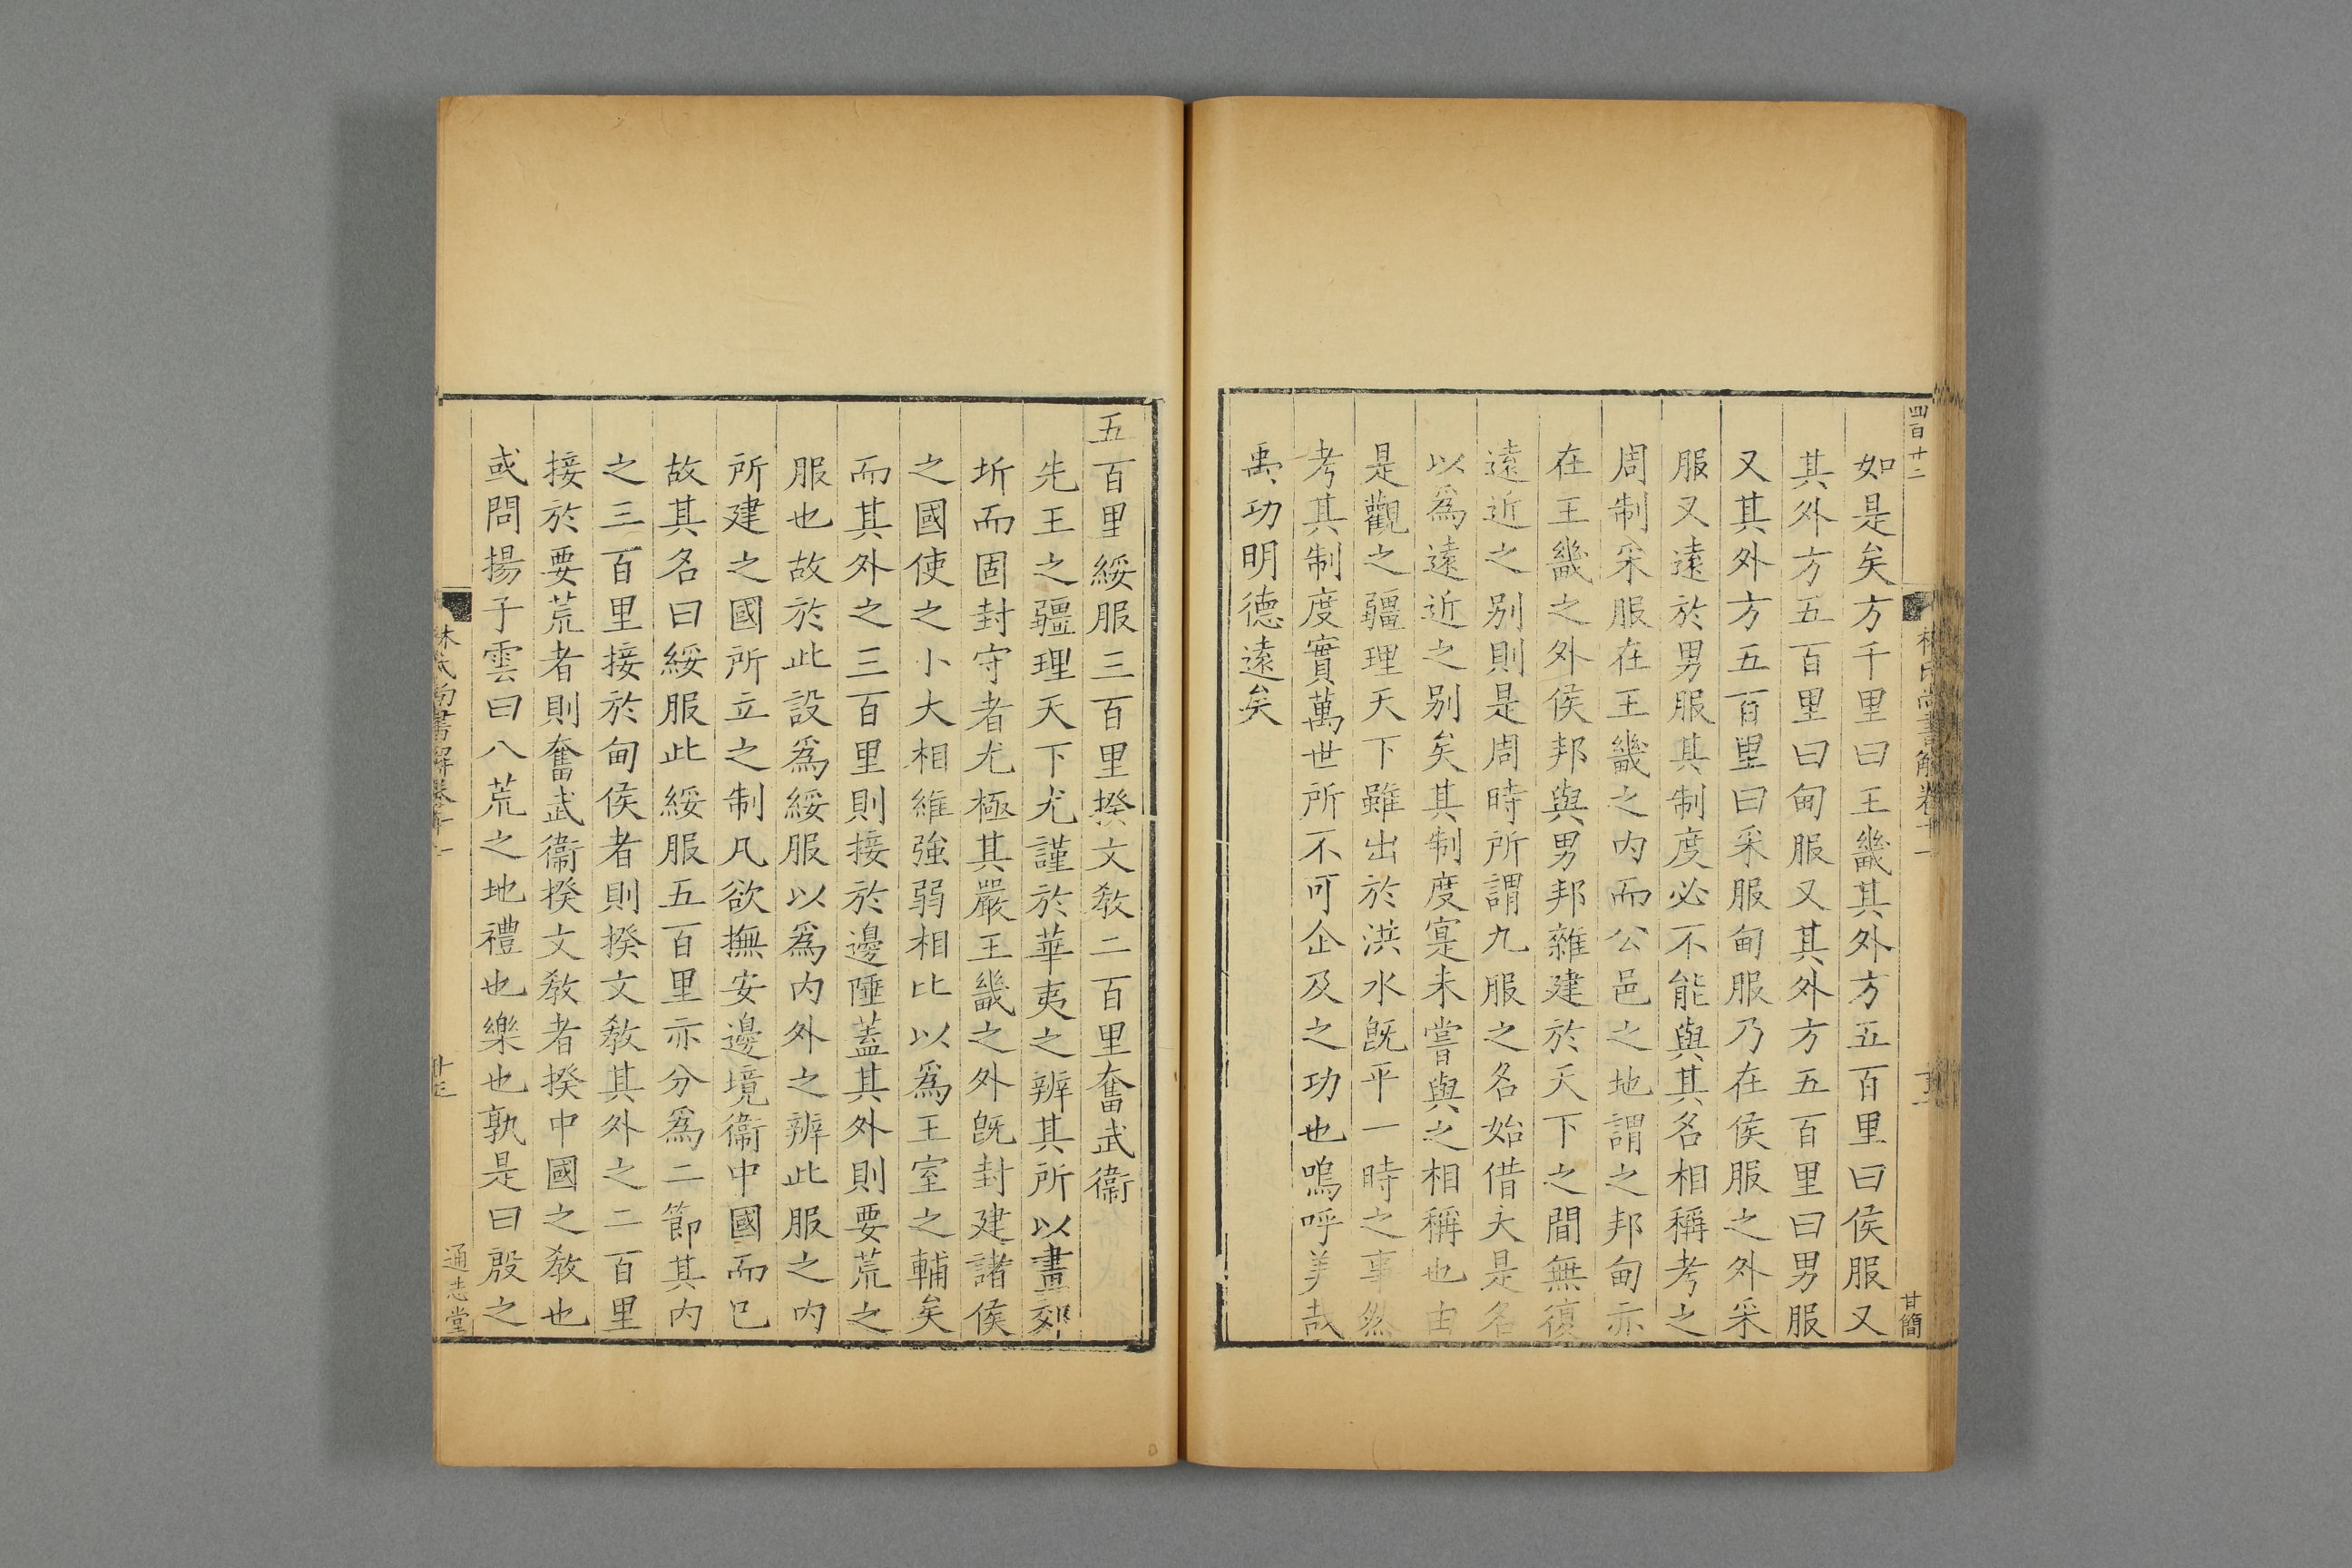 四百十二
甘簡
如是矣方千里曰王畿其外方五百里曰侯服又
其外方五百里曰甸服又其外方五百里曰男服
又其外方五百里曰采服甸服乃在侯服之外采
服又遠於男服其制度必不能與其名相稱考之
周制采服在王畿之内而公邑之地謂之邦甸亦
在王畿之外侯邦與男邦雜建於天下之間無復
遠近之别則是周時所謂九服之名始借夫是名
以爲遠近之别矣其制度寔未嘗與之相稱也由
是觀之疆理天下雖出於洪水旣平一時之事然
考其制度實萬世所不可企及之功也嗚呼美哉
禹功明德遠矣
五百里綏服三百里揆文敎二百里奮武衞
先王之疆理天下尤謹於華夷之辨其所以畫郊
圻而固封守者尤極其嚴王畿之外旣封建諸侯
之國使之小大相維強弱相比以爲王室之輔矣
而其外之三百里則接於邊陲蓋其外則要荒之
服也故於此設爲綏服以爲内外之辨此服之内
所建之國所立之制凡欲撫安邊境衞中國而已
故其名曰綏服此綏服五百里亦分爲二節其内
之三百里接於甸侯者則揆文敎其外之二百里
接於要荒者則奮武衞揆文敎者揆中國之敎也
或問揚子雲曰八荒之地禮也樂也孰是曰殷之
林氏尚書解卷十一
通志堂